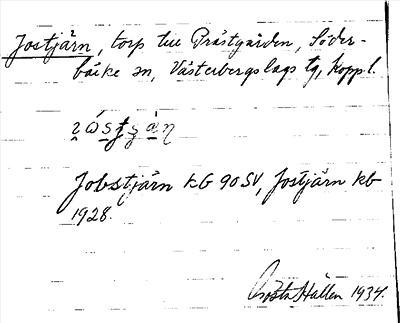 Jostjärn, torp till Prästgården, Söder-
bärke sn, Västerbergslags tg, Koppl.
Jobstjärn KG 90 SV, Jostjärn kb
1928.
Gösta Hallén 1934.